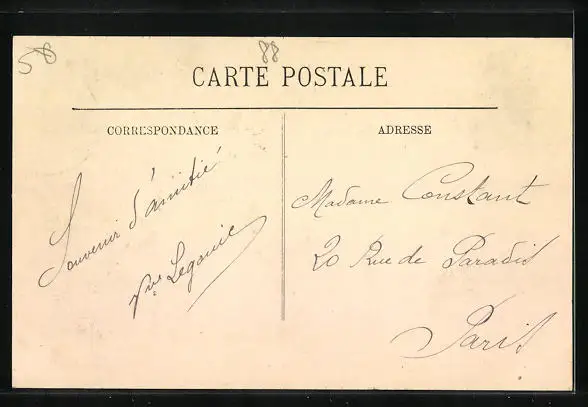 58
88
CARTE POSTALE
CORRESPONDANCE
Souvenir d'amitié
Vve
ADRESSE
Madame Constant
20 Rue de Paradis
Paris